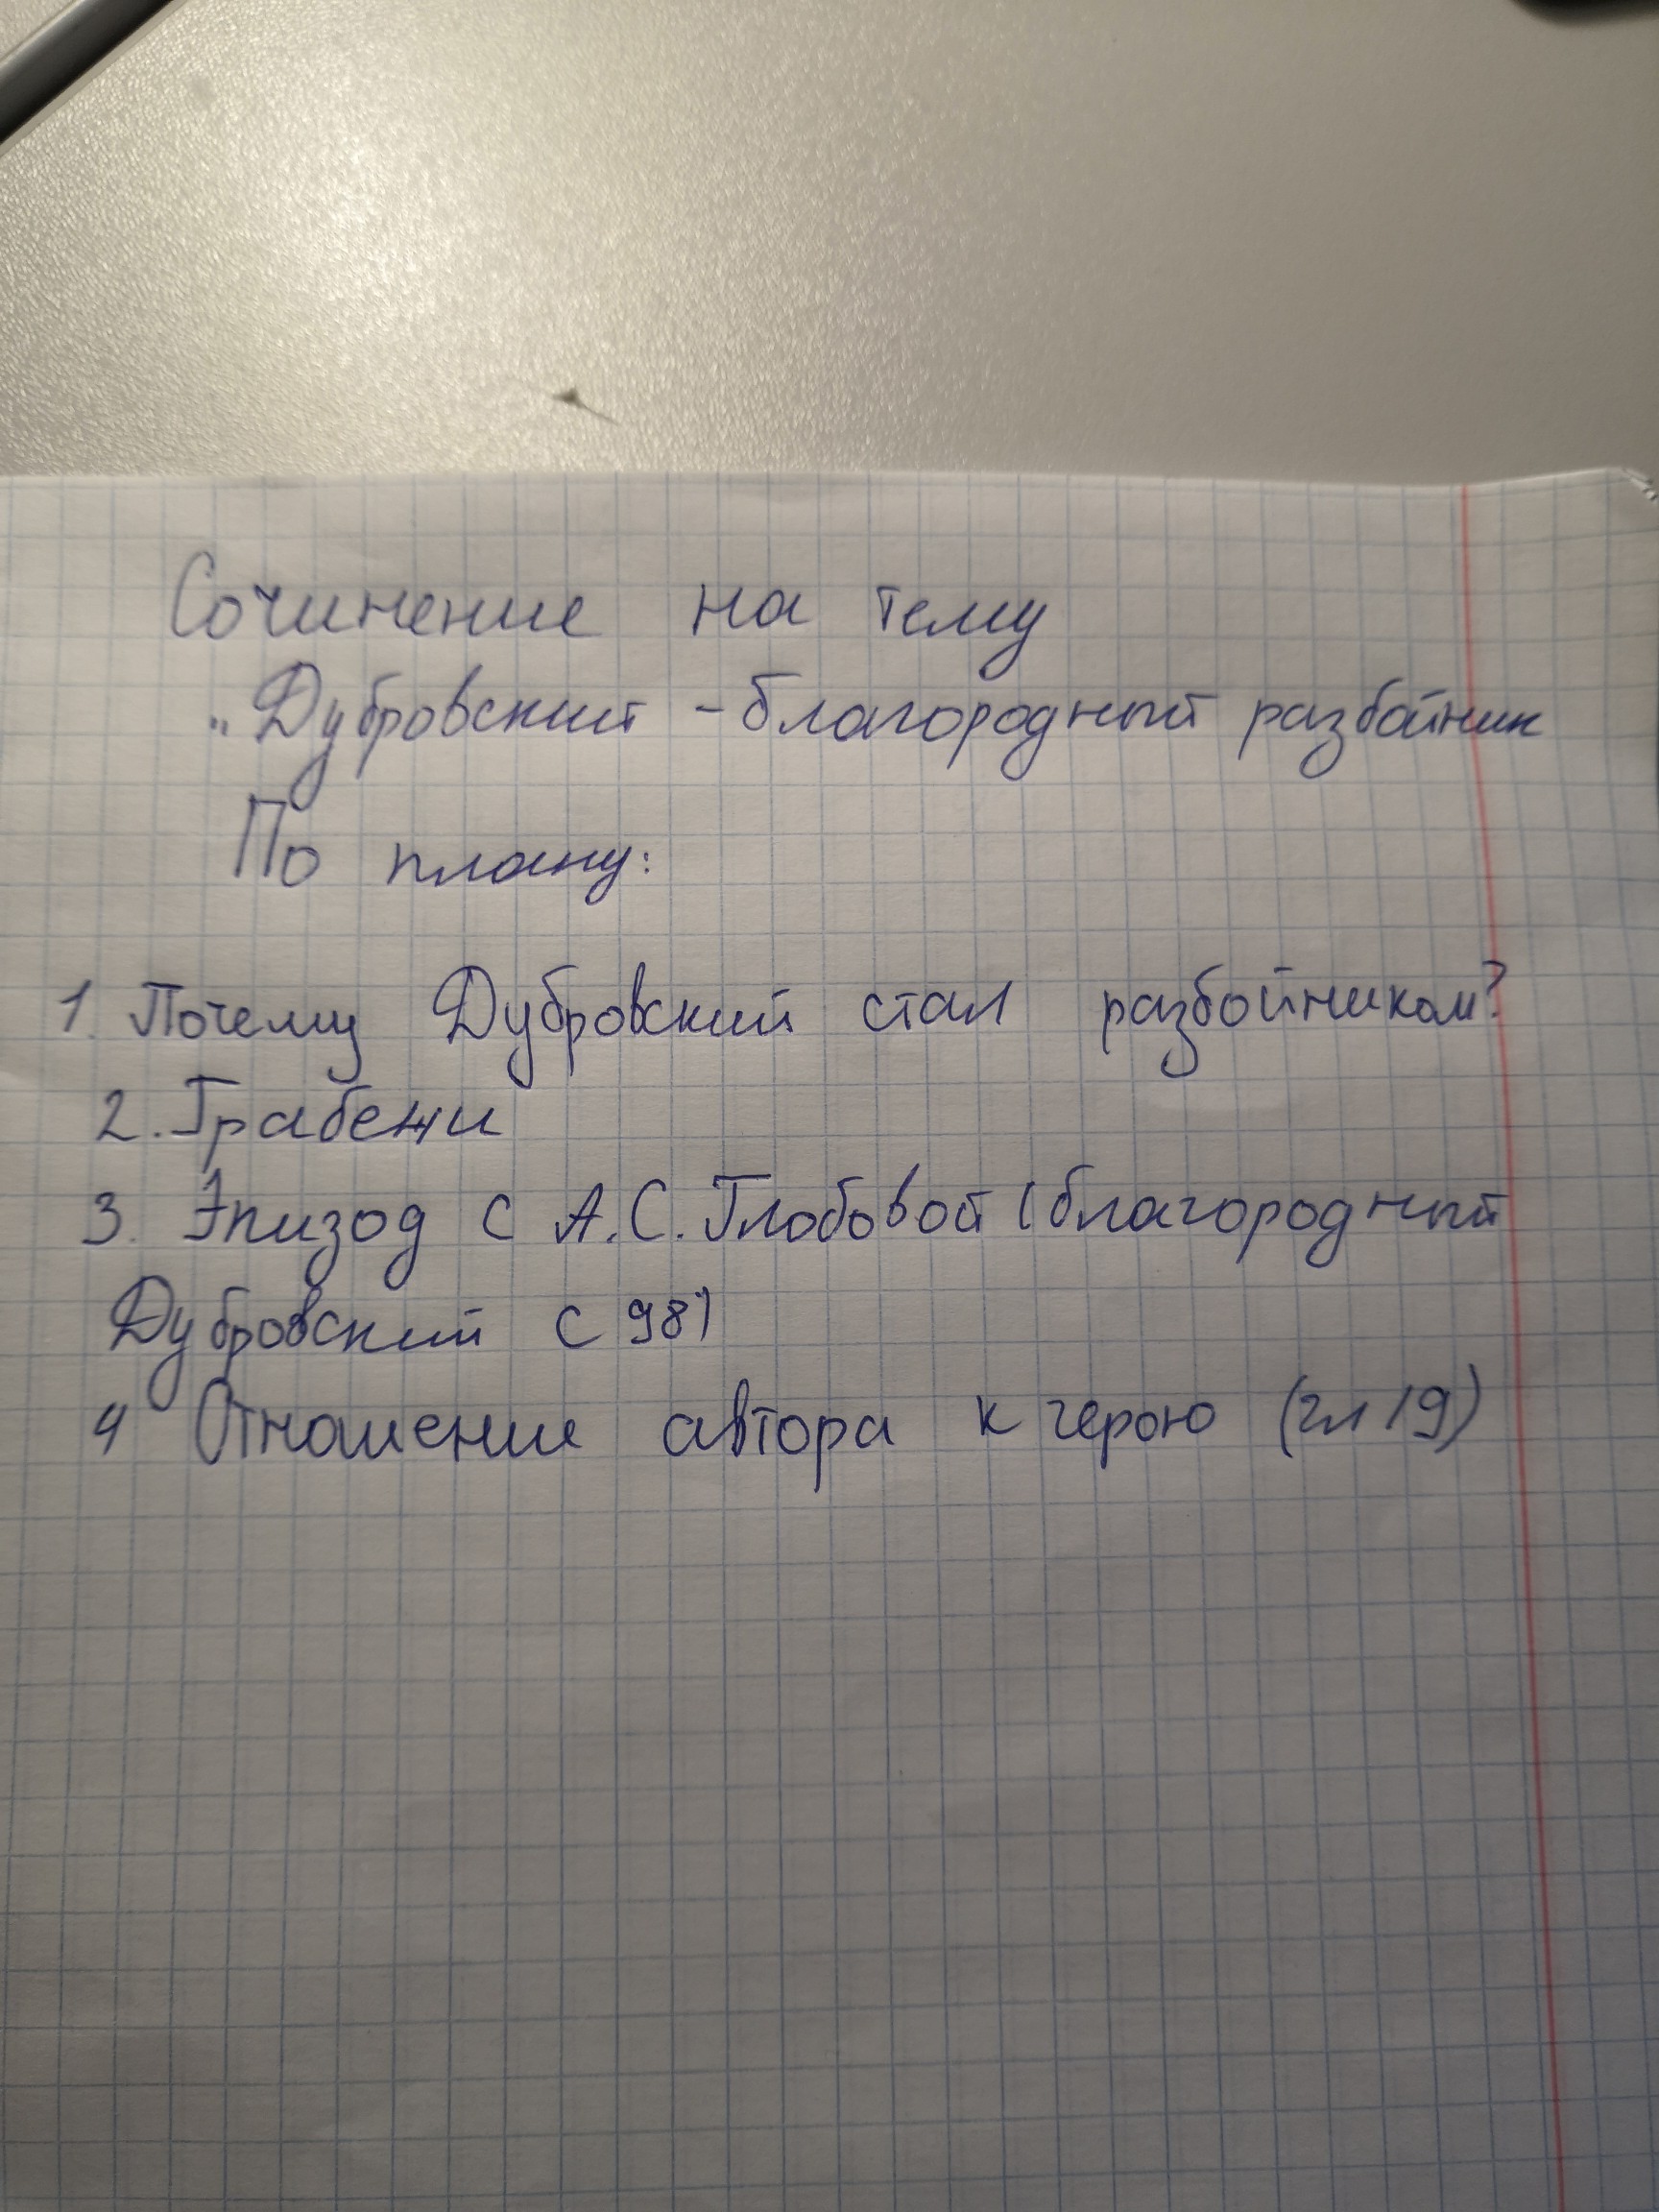 Сочинение на тему
„Дубровский - благородный разбойник
По плану:
1. Почему Дубровский стал разбойником?
2. Грабежи
3. Эпизод с А.С. Глобовой (благородный
Дубровский с 98)
4 Отношение автора к герою (гл 19)